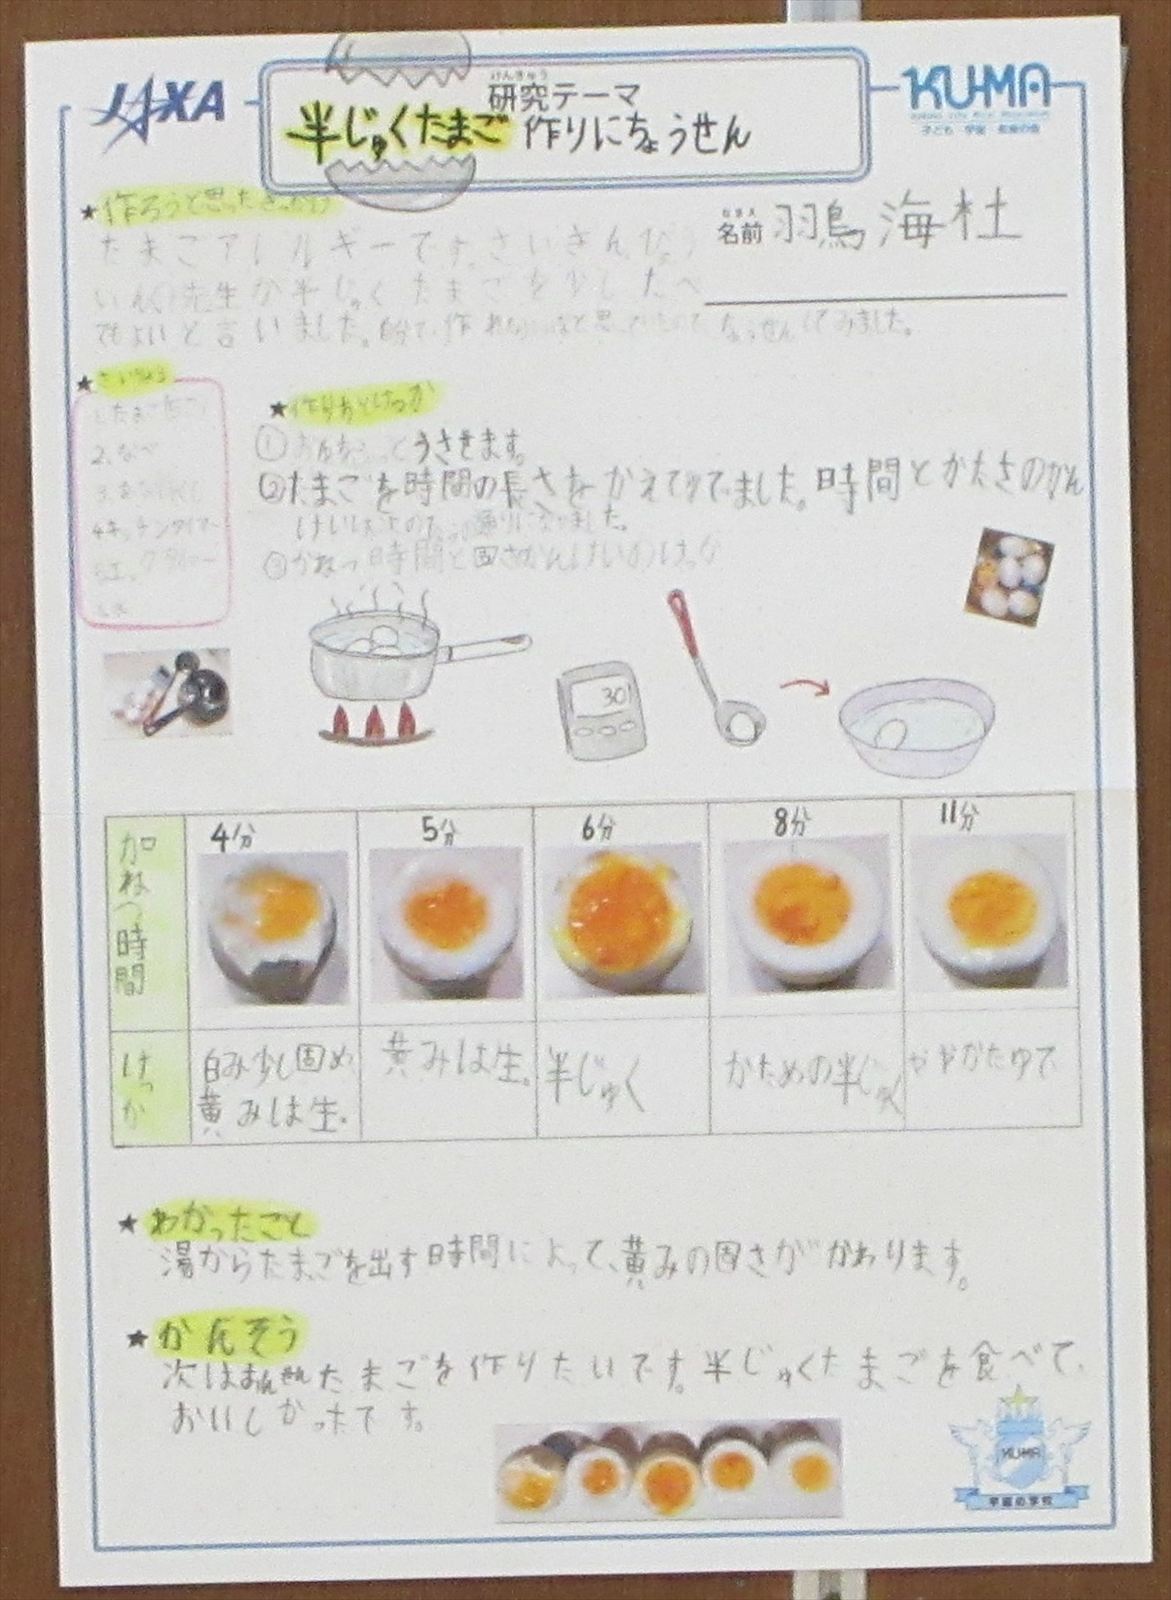 JAXA
けんきゅう
研究テーマ
半じゅくたまご作りにちょうせん
KU-MA
子ども・宇宙・未来の会
なまえ
名前 羽鳥 海杜
★作ろうと思ったきっかけ
たまごアレルギーです。さいきん、びょう
いんの先生が半じゅくたまごを少したべ
てもよいと言いました。自分で作れないかなと思ったのでちょうせんしてみました。
★ざいりょう
2.なべ
4.キッチンタイマー
★作り方とけっか
① うさせます。
②たまごを時間の長さをかえてゆでました。時間とかたさのかん
③かねつ時間と固さかんけいのけっか
30
加ねつ時間
4分
5分
6分
8分
11分
けっか
白み少し固め、黄みは生。
黄みは生。
半じゅく
かための半じゅく
ややかたゆで
★わかったこと
湯からたまごを出す時間によって、黄みの固さがかわります。
★かんそう
次はおんせんたまごを作りたいです。半じゅくたまごを食べて、
おいしかったです。
KU-MA
宇宙の学校